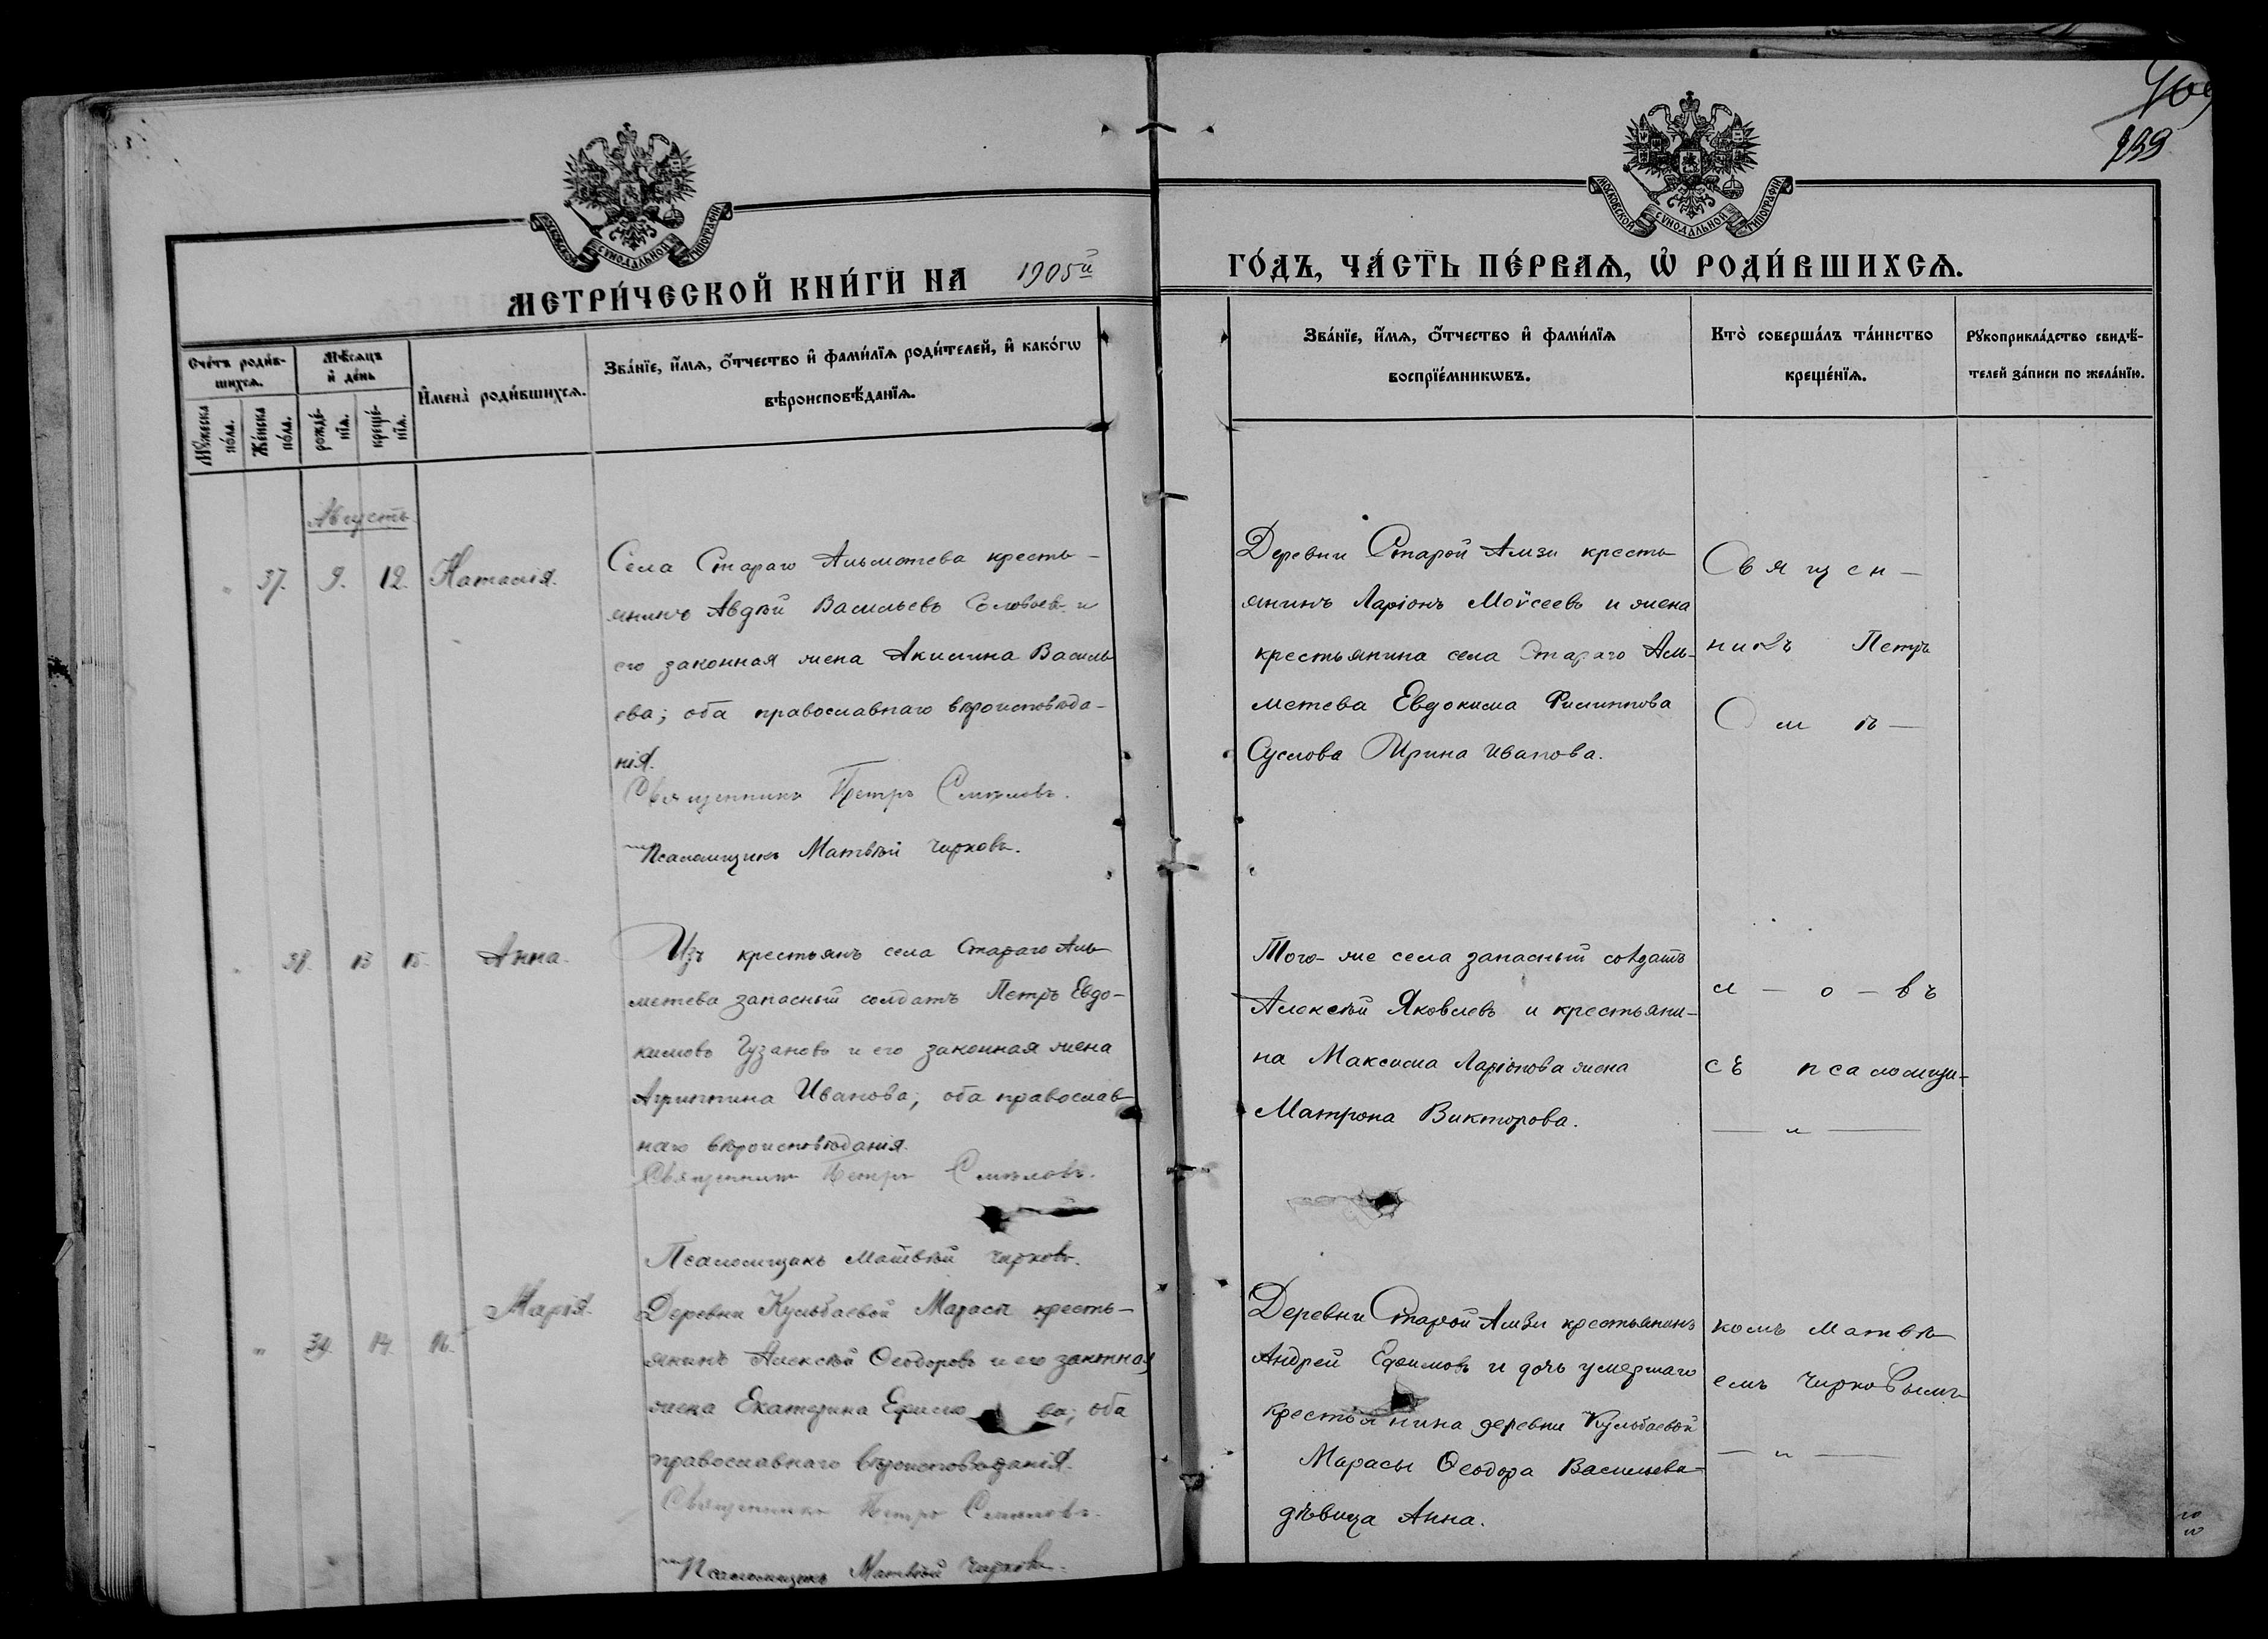 409
139
МОСКОВСКОЙ СѴНОДАЛЬНОЙ ТИПОГРАФІИ
МОСКОВСКОЙ СѴНОДАЛЬНОЙ ТИПОГРАФІИ
МЕТРИ́ЧЕСКОЙ КНИ́ГИ НА 1905й
ГО́ДЪ, ЧА́СТЬ ПЕ́РВАѦ, Ѡ҆ РОДИ́ВШИХСѦ.
Сче́тъ роди́в-
шихсѧ.
Мꙋ́жеска
по́ла.
Же́нска
по́ла.
Мѣ́сѧцъ
и҆ де́нь
рожде́-
нїѧ.
креще́-
нїѧ.
И҆мена̀ роди́вшихсѧ.
Зва́нїе, и҆́мѧ, ѻ҆́тчество и҆ фами́лїѧ роди́телей, и҆ како́гѡ
вѣроисповѣ́данїѧ.
Зва́нїе, и҆́мѧ, ѻ҆́тчество и҆ фами́лїѧ
воспрїе́мникѡвъ.
Кто̀ соверша́лъ та́инство
креще́нїѧ.
Рꙋкоприкла́дство свидѣ́-
телей за́писи по жела́нїю.
Августъ.
„ 37. 9. 12. Наталія.
Села Стараго Альметева кресть-
янинъ Авдѣй Васильевъ Соловьевъ и
его законная жена Акилина Василь
ева; оба православнаго вѣроисповѣда-
нія.
Священникъ Петръ Смѣловъ.
Псаломщикъ Матвѣй Чирковъ.
Деревни Старой Амзи кресть
янинъ Ларіонъ Моѵсеевъ и жена
крестьянина села Стараго Аль-
метева Евдокима Филиппова
Суслова Ирина Иванова.
Священ-
никъ Петръ
См ѣ-
„ 38. 13 15. Анна.
Изъ крестьянъ села Стараго Аль
метева запасный солдатъ Петръ Евдо-
кимовъ Чузановъ и его законная жена
Агриппина Иванова; оба православ
наго вѣроисповѣданія.
Священникъ Петръ Смѣловъ.
Псаломщикъ Матвѣй Чирковъ.
Того-же села запасный солдатъ
Алексѣй Яковлевъ и крестьяни-
на Максима Ларіонова жена
Матрона Викторова.
л - о - въ
съ псаломщи-
— „ —
„ 39. 14. 16. Марія.
Деревни Кульбаевой Марасы кресть-
янинъ Алексѣй Ѳеодоровъ и его законная
жена Екатерина ва; оба
православнаго вѣроисповѣданія.
Священникъ Петръ Смѣловъ.
Псаломщикъ Матвѣй Чирковъ.
Деревни Старой Амзи крестьянинъ
Андрей Ефимовъ и дочь умершаго
крестьянина деревни Кульбаевой
Марасы Ѳеодора Васильева
дѣвица Анна.
комъ Матвѣ
емъ Чирковымъ
— „ —